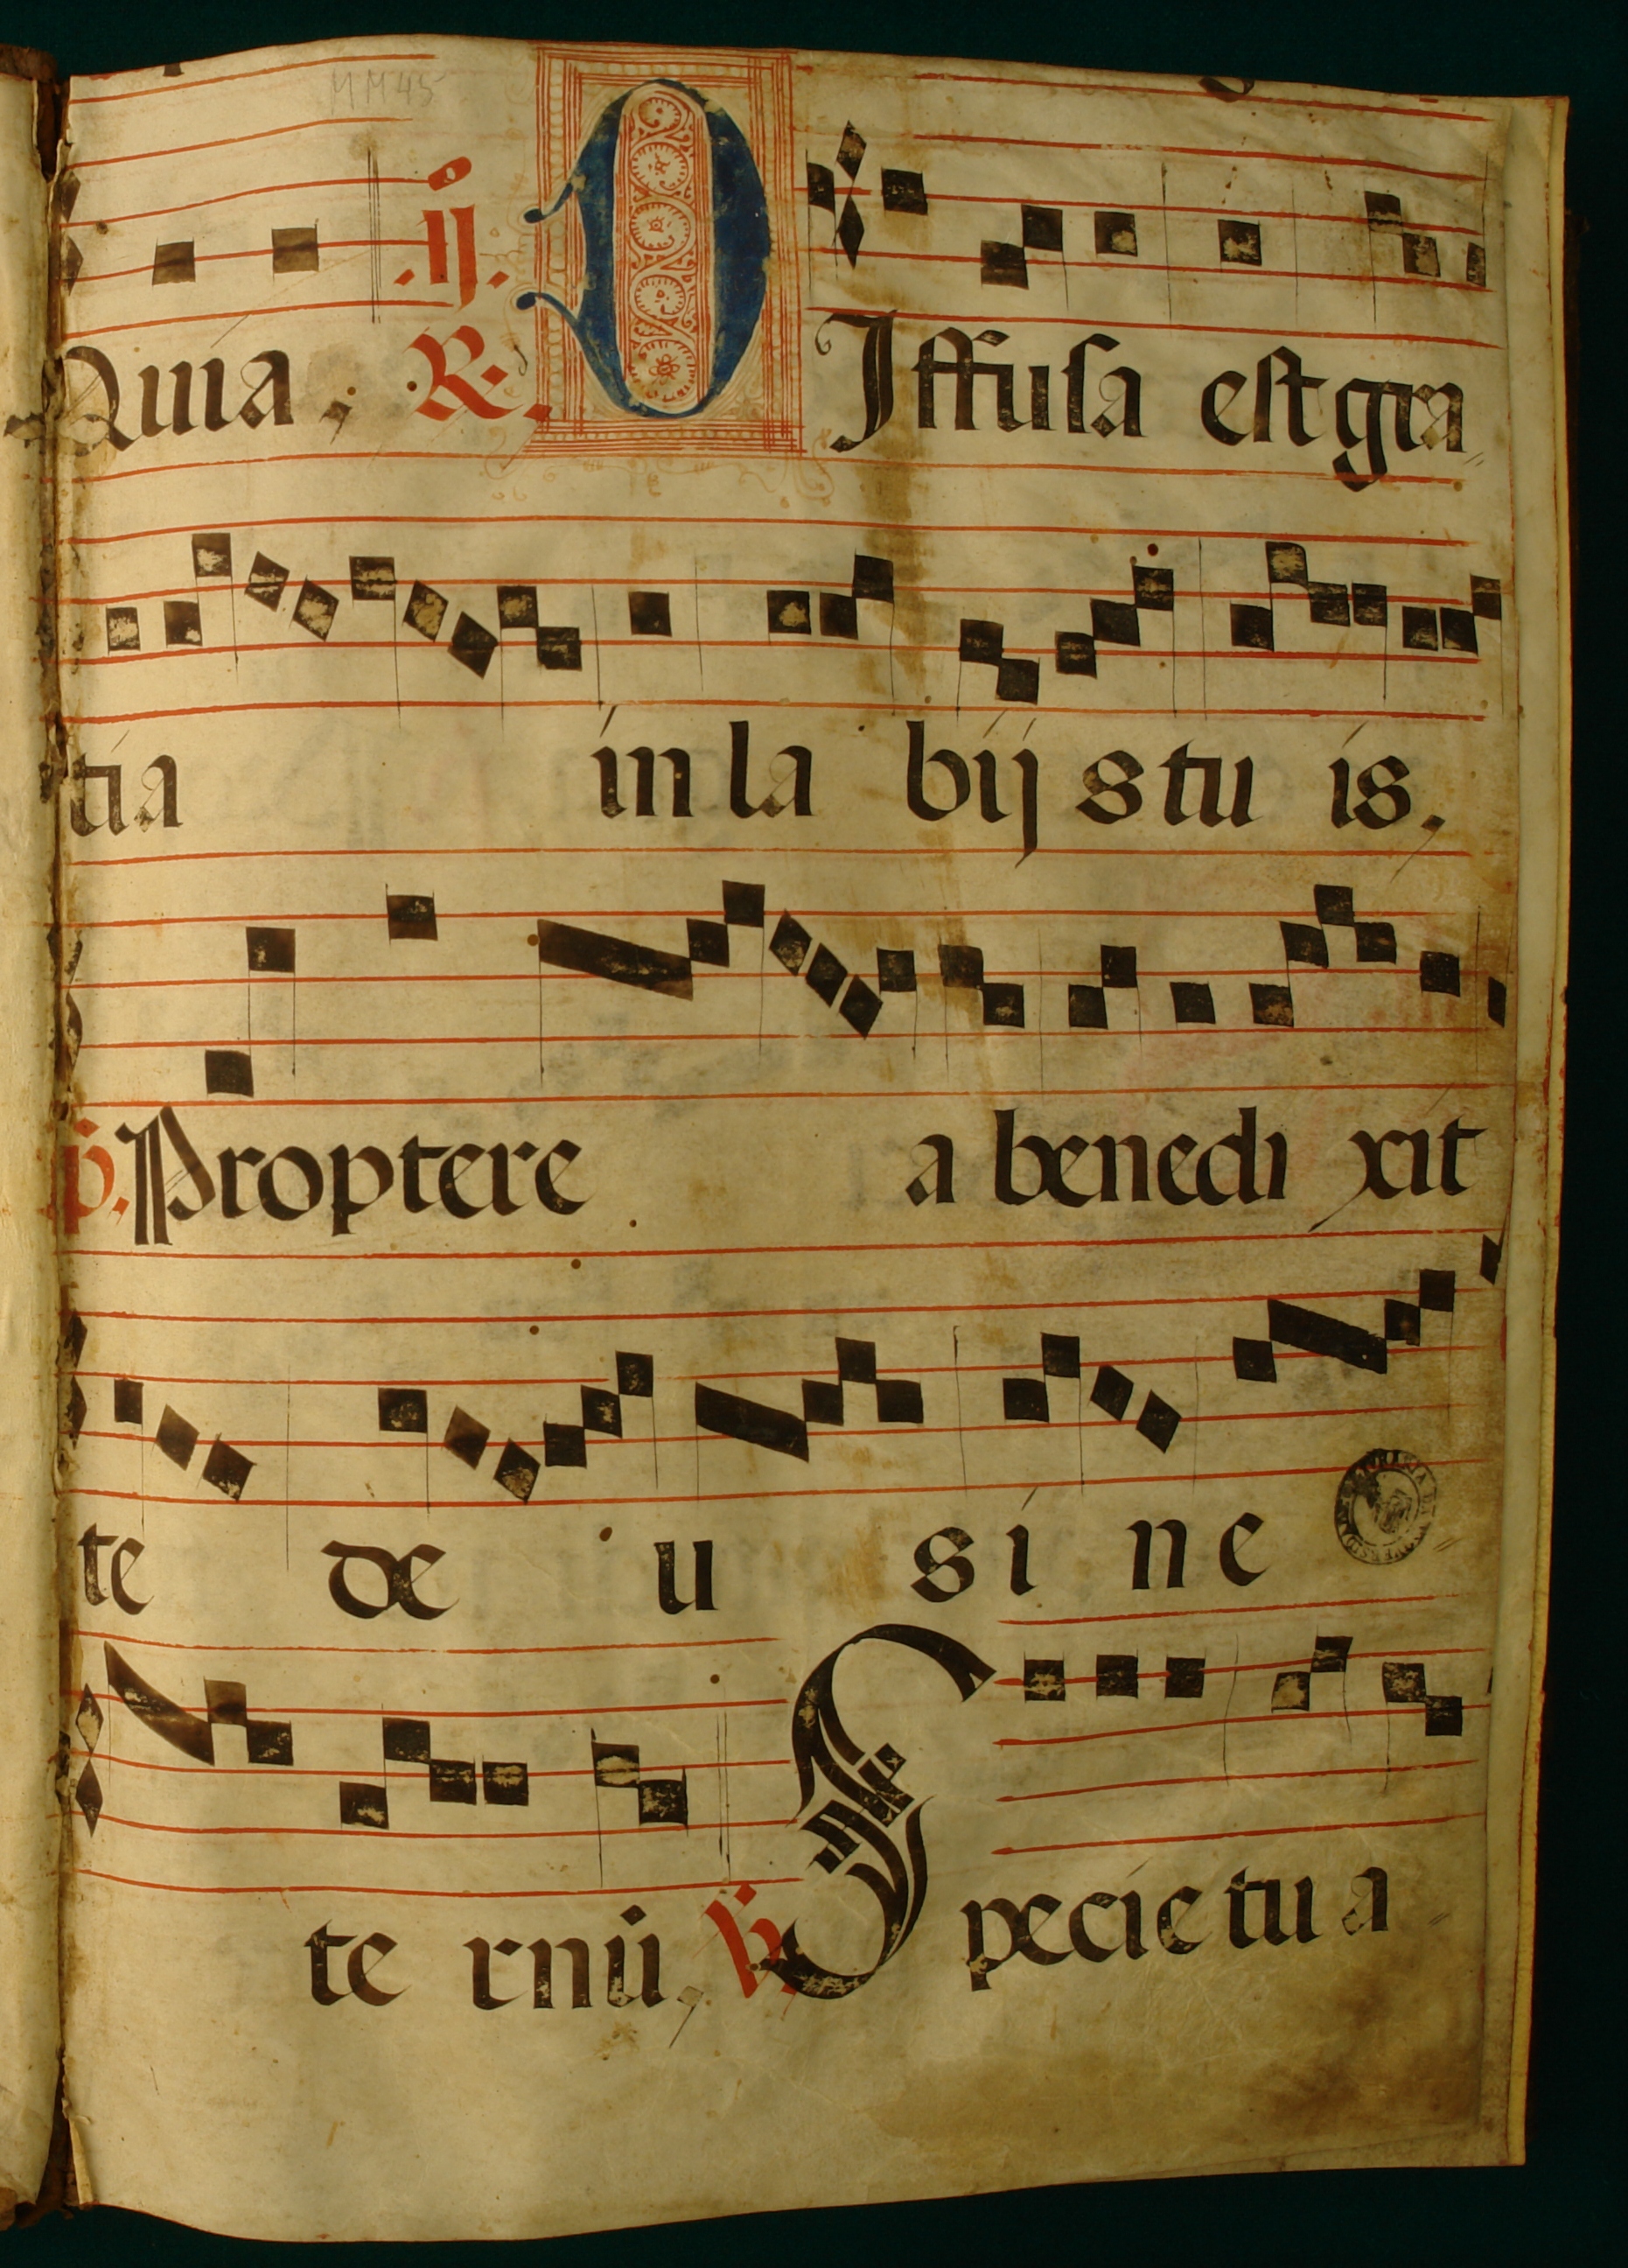 MM45
Quia. .ij. R. DIffusa est gra
tia in la bijs tu is.
p. Propterea benedi xit
te de us in e
te rnũ, V. Specie tua